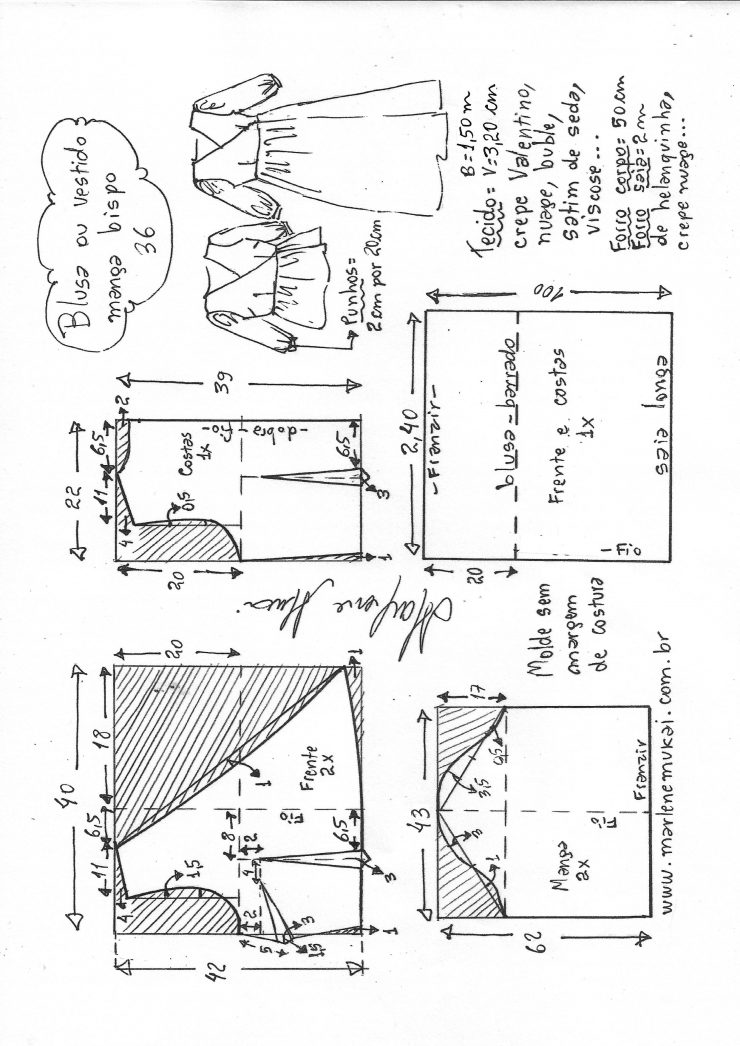 Blusa ou vestido
manga bispo
36
Punhos =
2 cm por 20cm
B = 1,50 m
Tecido = V = 3,20 cm
crepe Valentino,
nuage, buble,
satim de seda,
viscose...
Forro corpo = 50 cm
Forro saia = 2 m
de helanquinha,
crepe nuage...
40
11
6,5
18
4
1,5
20
42
1
Frente
2x
Fio
8
2
4
2
4
5
3
1,5
6,5
3
1
1
22
11
6,5
2
4
0,5
Costas
1x
-dobra-fio-
20
39
6,5
3
1
Marlene Mukai
43
17
3
1
3,5
0,5
62
Manga
2x
Fio
Franzir
Molde sem
margem
de costura
2,40
-Franzir-
20
100
blusa-barrado
Frente e costas
1x
Fio
saia longa
www.marlenemukai.com.br